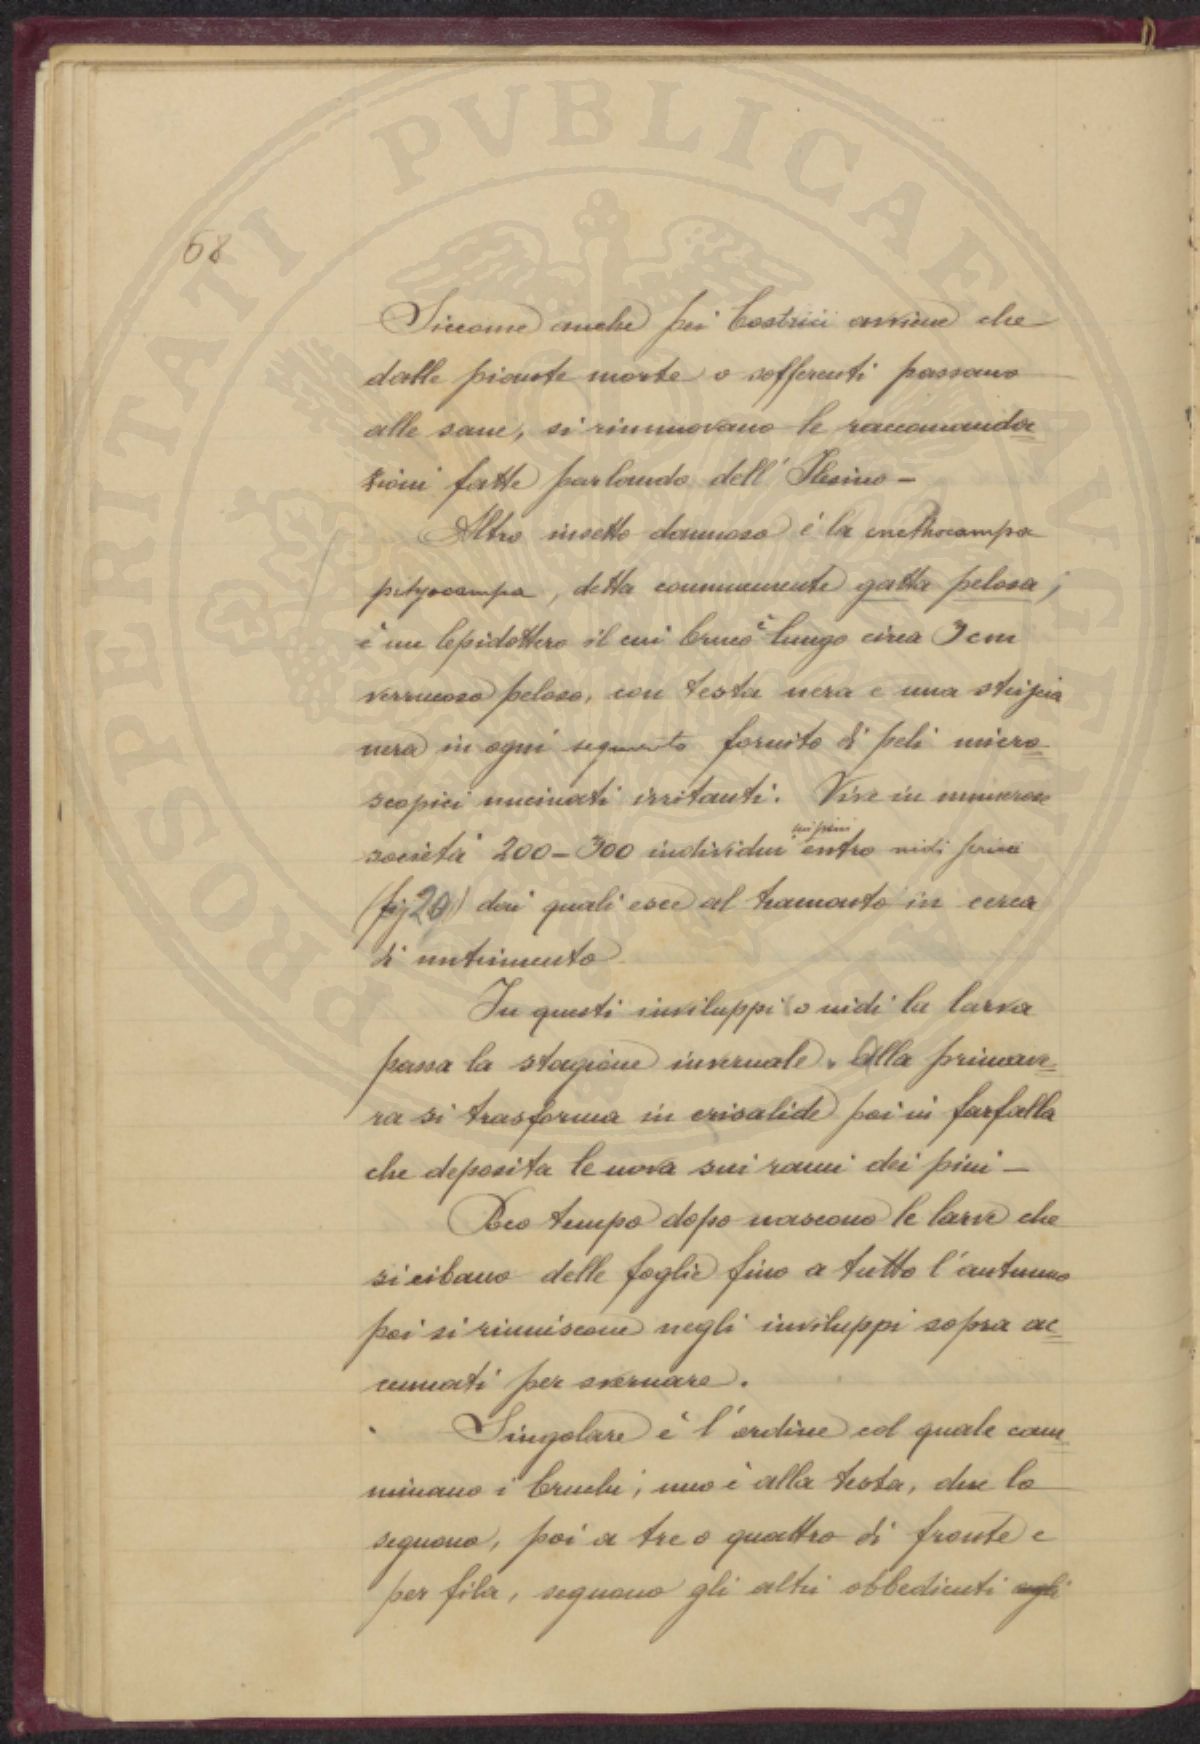 68
Siccome anche pei bostrici avviene che
dalle piante morte o sofferenti passano
alle sane, si rinnuovano le raccomanda=
zioni fatte parlando dell'Ilesino -
Altro insetto dannoso è la cnethocampa
pityocampa, detta comunemente gatta pelosa;
è un lepidottero il cui bruco è lungo circa 3 cm
verrucoso peloso, con testa nera e una striscia
nera in ogni segmento fornito di peli micro=
scopici uncinati irritanti. Vive in numerose
società 200-300 individui sui pini entro nidi
(fig 20) dai quali esce al tramonto in cerca
di nutrimento
In questi inviluppi o nidi la larva
passa la stagione invernale. Alla primave=
ra si trasforma in crisalide poi in farfalla
che deposita le uova sui rami dei pini -
Poco tempo dopo nascono le larve che
si cibano delle foglie fino a tutto l'autunno
poi si riuniscono negli inviluppi sopra ac=
cennati per svernare.
Singolare è l'ordine col quale cam=
minano i bruchi; uno è alla testa, due lo
seguono, poi a tre o quattro di fronte e
per fila, seguono gli altri obbedienti
PROSPERITATI PVBLICAE AVGENDAE